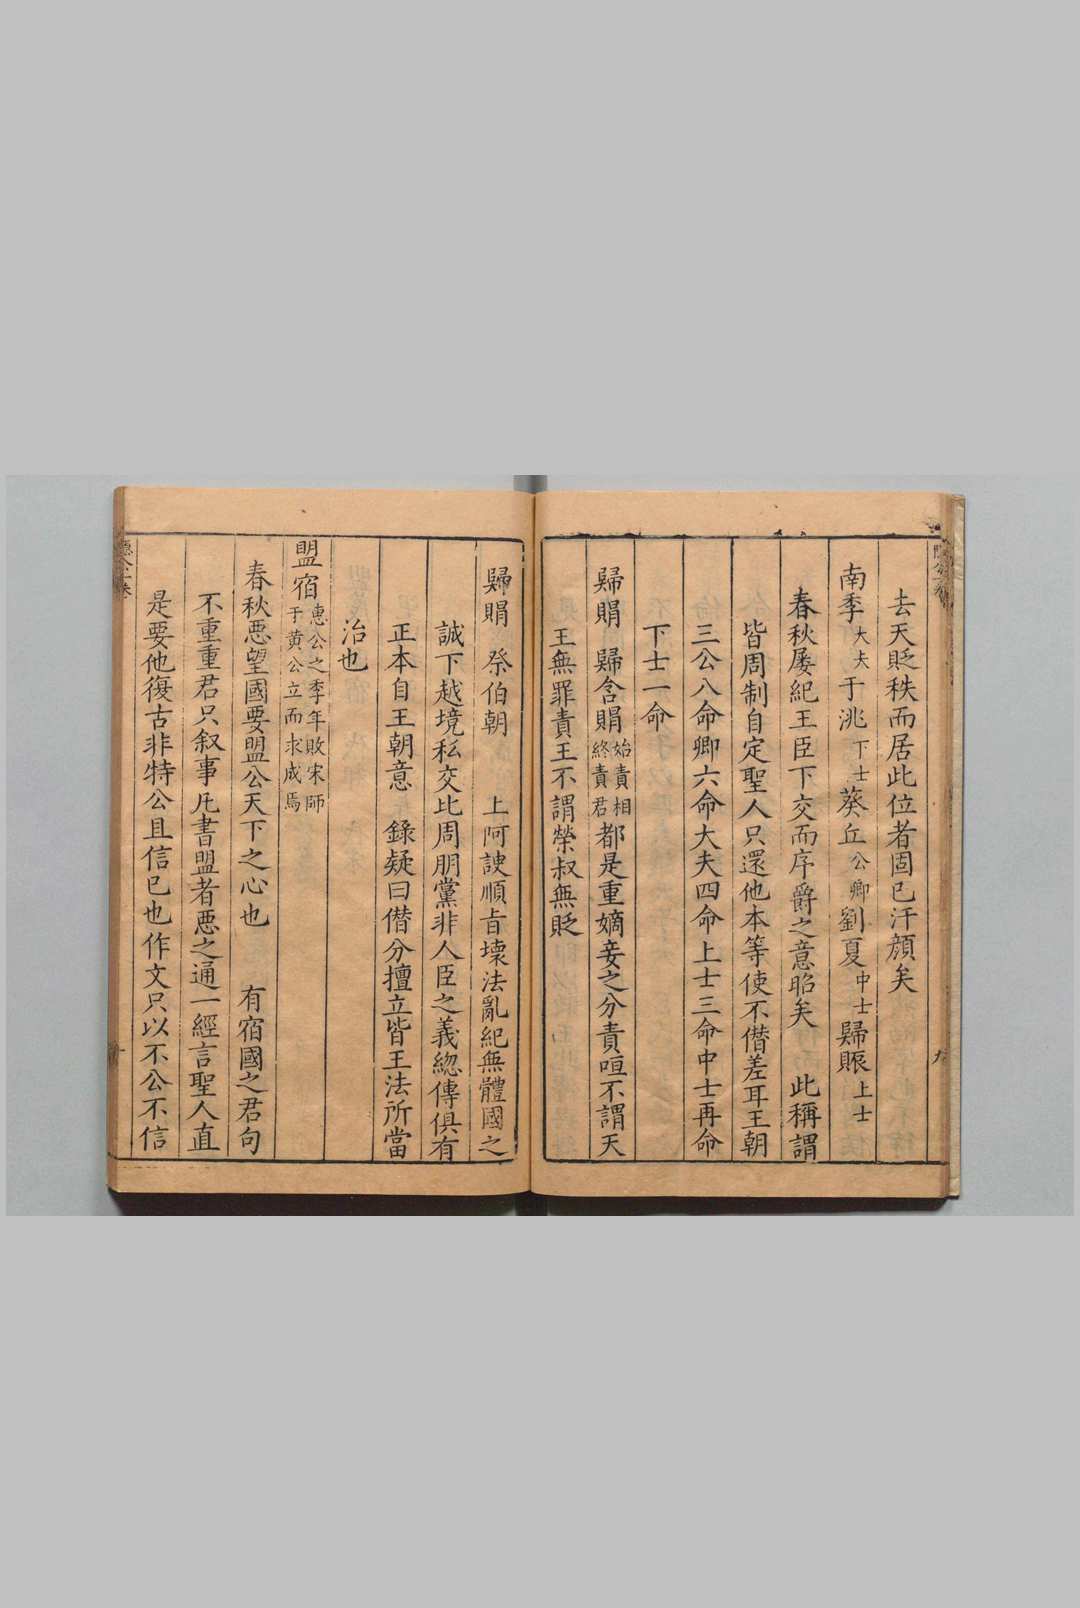 去天貶秩而居此位者固已汗顏矣
南季大夫于洮下士葵丘公卿劉夏中士歸賑上士
春秋屡紀王臣下交而序爵之意昭矣 此稱謂
皆周制自定聖人只還他本等使不僣差耳王朝
三公八命卿六命大夫四命上士三命中士再命
下士一命
歸賵 歸含賵始責相終責君都是重嫡妾之分責咺不謂天
王無罪責王不謂榮叔無貶
九
歸賵 祭伯朝 上阿諛順旨壞法亂紀無體國之
誠下越境私交比周朋黨非人臣之義緫傳俱有
正本自王朝意 錄疑曰僣分擅立皆王法所當
治也
盟宿惠公之季年敗宋師于黄公立而求成焉
春秋惡望國要盟公天下之心也 有宿國之君句
不重重君只叙事凡書盟者惡之通一經言聖人直
是要他復古非特公且信已也作文只以不公不信